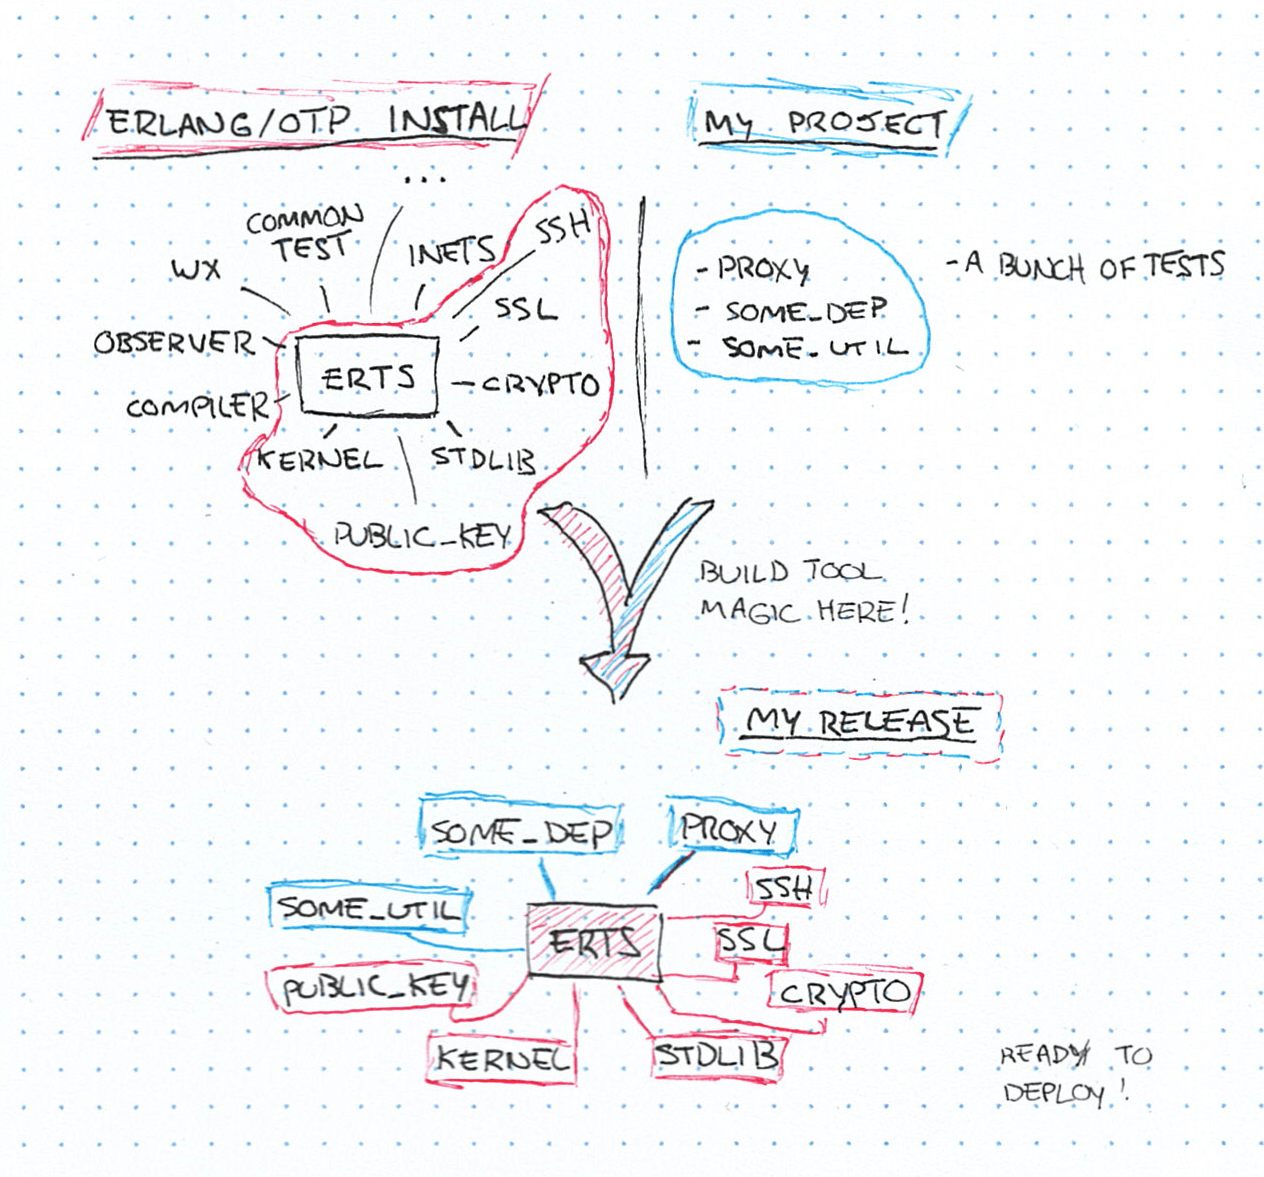 ERLANG/OTP INSTALL
MY PROJECT
...
COMMON
TEST
INETS
SSH
WX
SSL
OBSERVER
ERTS
CRYPTO
COMPILER
KERNEL
STDLIB
PUBLIC_KEY
- PROXY
- SOME_DEP
- SOME_UTIL
- A BUNCH OF TESTS
BUILD TOOL
MAGIC HERE!
MY RELEASE
SOME_DEP
PROXY
SSH
SOME_UTIL
ERTS
SSL
PUBLIC_KEY
CRYPTO
KERNEL
STDLIB
READY TO
DEPLOY!